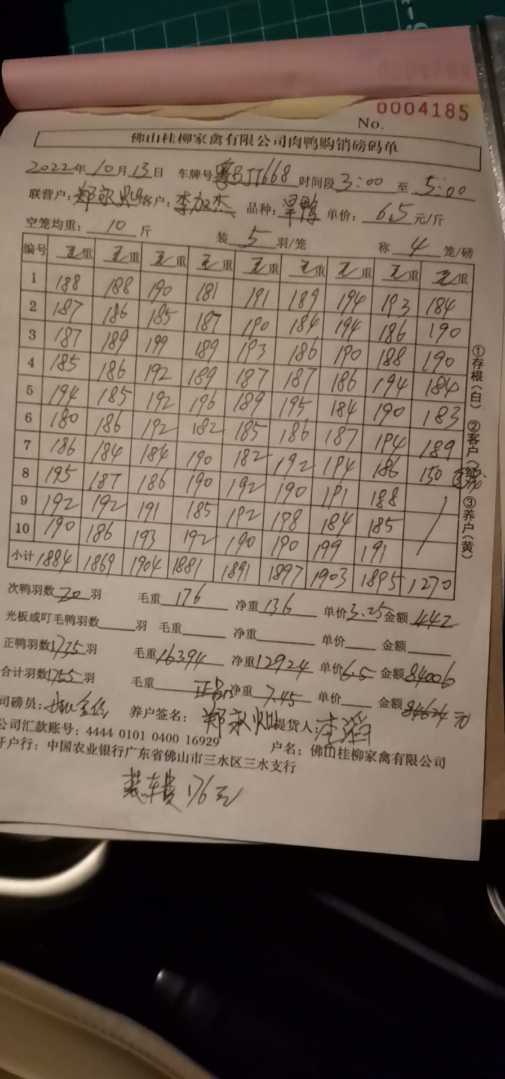 0004185
No.
佛山桂柳家禽有限公司肉鸭购销磅码单
2022年10月13日 车牌号 粤 JJ668 时间段 3:00 至 5:00
联营户: 郑 客户: 李加杰 品种: 旱鸭 单价: 6.5 元/斤
空笼均重: 10 斤 装 5 羽/笼 称 4 笼/磅
编号 毛重 毛重 毛重 毛重 毛重 毛重 毛重 毛重 毛重
1 188 188 190 181 191 189 194 193 184
2 187 186 185 187 190 184 194 186 190
3 187 189 199 189 193 186 190 188 190
4 185 186 192 189 187 187 186 194 184
5 194 185 192 196 189 195 184 190 183
6 180 186 192 182 185 186 187 194 189
7 186 184 184 190 182 192 194 186 150
8 195 187 186 190 192 190 191 188
9 192 192 191 185 192 198 184 185
10 190 186 193 192 190 190 199 191
小计 1884 1869 1904 1881 1891 1897 1903 1895 1270
①存根(白) ②客户(红) ③养户(黄)
次鸭羽数 20 羽 毛重 176 净重 136 单价 3.25 金额 442
光板或叮毛鸭羽数 羽 毛重 净重 单价 金额
正鸭羽数 1735 羽 毛重 16394 净重 12924 单价 6.5 金额 84006
合计羽数 1755 羽 毛重 正品 净重 7.45 单价 金额 元
司磅员: 养户签名: 郑 提货人: 李
公司汇款账号: 4444 0101 0400 16929 户名: 佛山桂柳家禽有限公司
开户行: 中国农业银行广东省佛山市三水区三水支行
装车费 176元